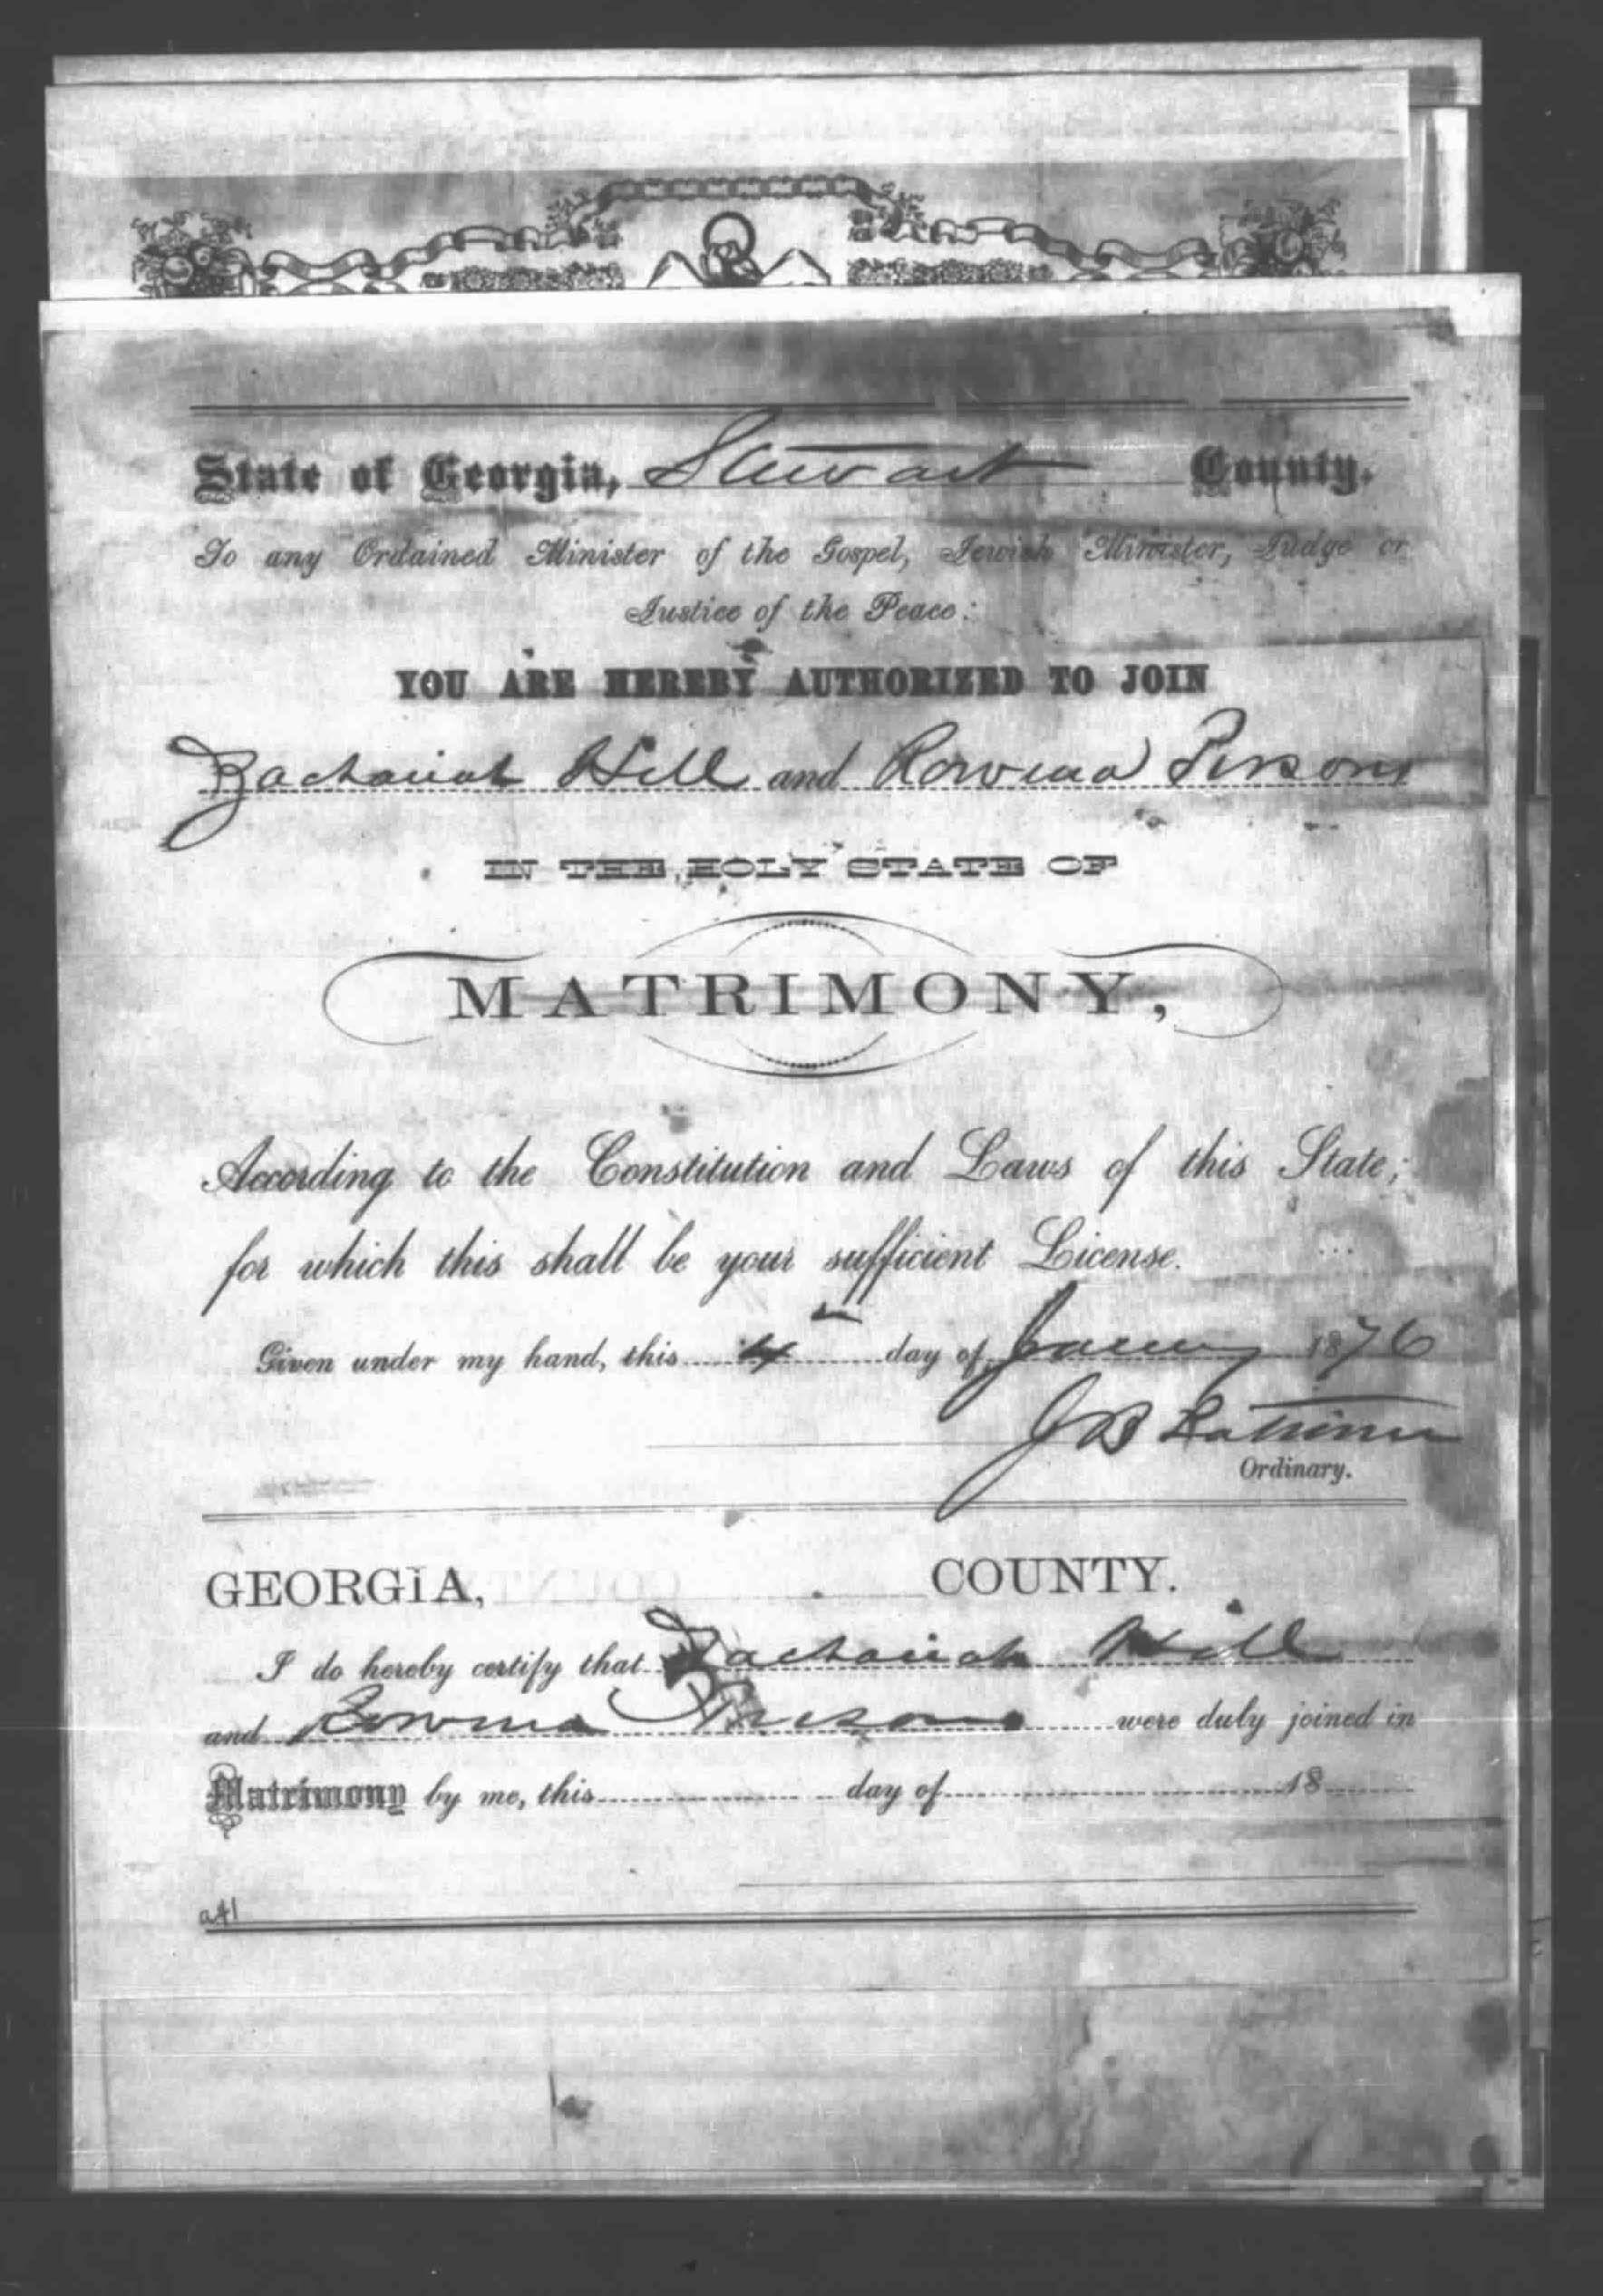 State of Georgia, Stewart County.
To any Ordained Minister of the Gospel, Jewish Minister, Judge or
Justice of the Peace:
YOU ARE HEREBY AUTHORIZED TO JOIN
Zachariah Hill and Rowena Persons
IN THE HOLY STATE OF
MATRIMONY,
According to the Constitution and Laws of this State;
for which this shall be your sufficient License.
Given under my hand, this 4 day of January 1876
J B Lattimer
Ordinary.
GEORGIA, COUNTY.
I do hereby certify that Zachariah Hill
and Rowena Persons were duly joined in
Matrimony by me, this day of 18
a41